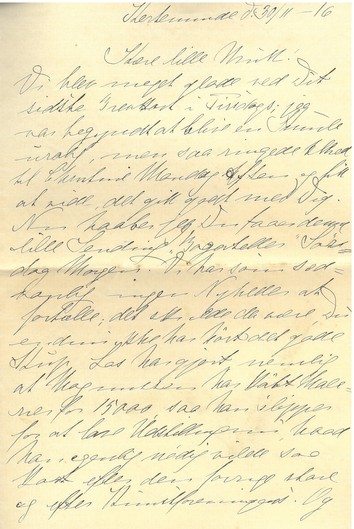 Kerteminde d. 30/11 – 16
Kære lille
Vi blev meget glade ved Dit
sidste Brevkort i Tirsdags; jeg
var begyndt at blive en Smule
urolig, men saa ringede
til Mandag Aften og fik
at vide, det gik godt med Dig.
Nu haaber jeg Du faaer denne
lille Sending
dag Morgen. Vi har som sed-
vanlig ingen Nyheder at
fortælle; det skulde da være Du
endnu ikke har hørt det gode
Las har gjort nemlig
at Magnussen har købt Male-
rier for 15000, saa han slipper
for at lave Udstillingen, hvad
han egentlig nødig vilde saa
kort efter den forrige store
og efter Kunstforeningens. Og